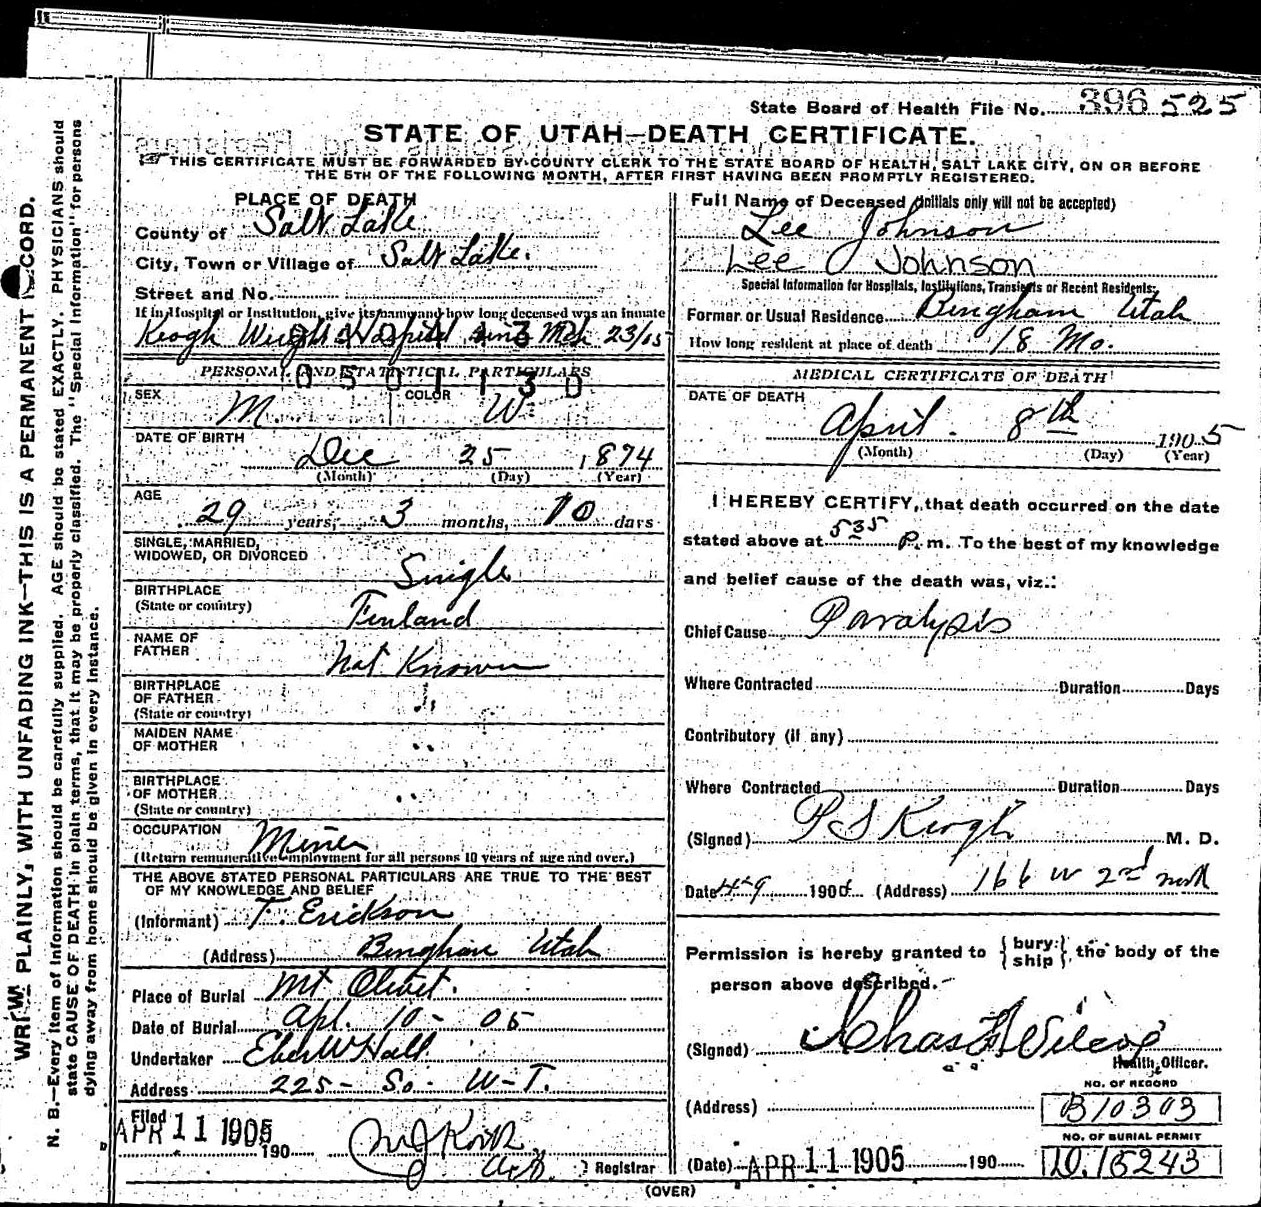 State Board of Health File No. 396 525
STATE OF UTAH—DEATH CERTIFICATE.
THIS CERTIFICATE MUST BE FORWARDED BY COUNTY CLERK TO THE STATE BOARD OF HEALTH, SALT LAKE CITY, ON OR BEFORE
THE 5TH OF THE FOLLOWING MONTH, AFTER FIRST HAVING BEEN PROMPTLY REGISTERED.
PLACE OF DEATH
County of Salt Lake
City, Town or Village of Salt Lake.
Street and No.
If in Hospital or Institution, give its name and how long deceased was an inmate
Keogh Wright Hospital since Mch 23/05
0501130
PERSONAL AND STATISTICAL PARTICULARS
SEX M. COLOR W
DATE OF BIRTH
Dec 25 1874
(Month) (Day) (Year)
AGE
29 years, 3 months, 10 days
SINGLE, MARRIED,
WIDOWED, OR DIVORCED
Single
BIRTHPLACE
(State or country)
Finland
NAME OF
FATHER
Not Known
BIRTHPLACE
OF FATHER
(State or country)
"
MAIDEN NAME
OF MOTHER
"
BIRTHPLACE
OF MOTHER
(State or country)
"
OCCUPATION Miner
(Return remunerative employment for all persons 10 years of age and over.)
THE ABOVE STATED PERSONAL PARTICULARS ARE TRUE TO THE BEST
OF MY KNOWLEDGE AND BELIEF
(Informant) T. Erickson
(Address) Bingham Utah
Place of Burial Mt Olivet.
Date of Burial Apl. 10 - 05
Undertaker Eber W Hall
Address 225 - So - W - T.
Filed
APR 11 1905 190
Registrar
Full Name of Deceased (Initials only will not be accepted)
Lee Johnson
Lee Johnson
Special Information for Hospitals, Institutions, Transients or Recent Residents:
Former or Usual Residence Bingham Utah
How long resident at place of death 18 Mo.
MEDICAL CERTIFICATE OF DEATH
DATE OF DEATH
April 8th 1905
(Month) (Day) (Year)
I HEREBY CERTIFY, that death occurred on the date
stated above at 535 P. m. To the best of my knowledge
and belief cause of the death was, viz.:
Chief Cause Paralysis
Where Contracted Duration Days
Contributory (if any)
Where Contracted Duration Days
(Signed) P S Keogh M. D.
Date 4-9 1904 (Address) 166 W 2nd North
Permission is hereby granted to { bury / ship } the body of the
person above described.
(Signed) Chas Wilcox
Health Officer.
NO. OF RECORD
(Address) B10303
NO. OF BURIAL PERMIT
(Date) APR 11 1905 190 D.15243
(OVER)
WRITE PLAINLY, WITH UNFADING INK—THIS IS A PERMANENT RECORD.
N. B.—Every item of information should be carefully supplied. AGE should be stated EXACTLY. PHYSICIANS should
state CAUSE OF DEATH in plain terms, that it may be properly classified. The "Special Information" for persons
dying away from home should be given in every instance.